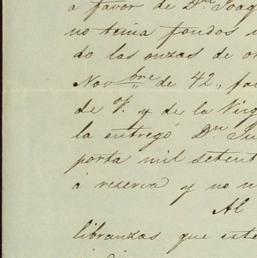 a favor de Dn Joaq
no tenia fondos
do las onzas de or
Novbre de 42, fa
de V. y de la Virg
la entregó Dn Ju
porta mil setent
á reserva y no
Al
libranzas que este